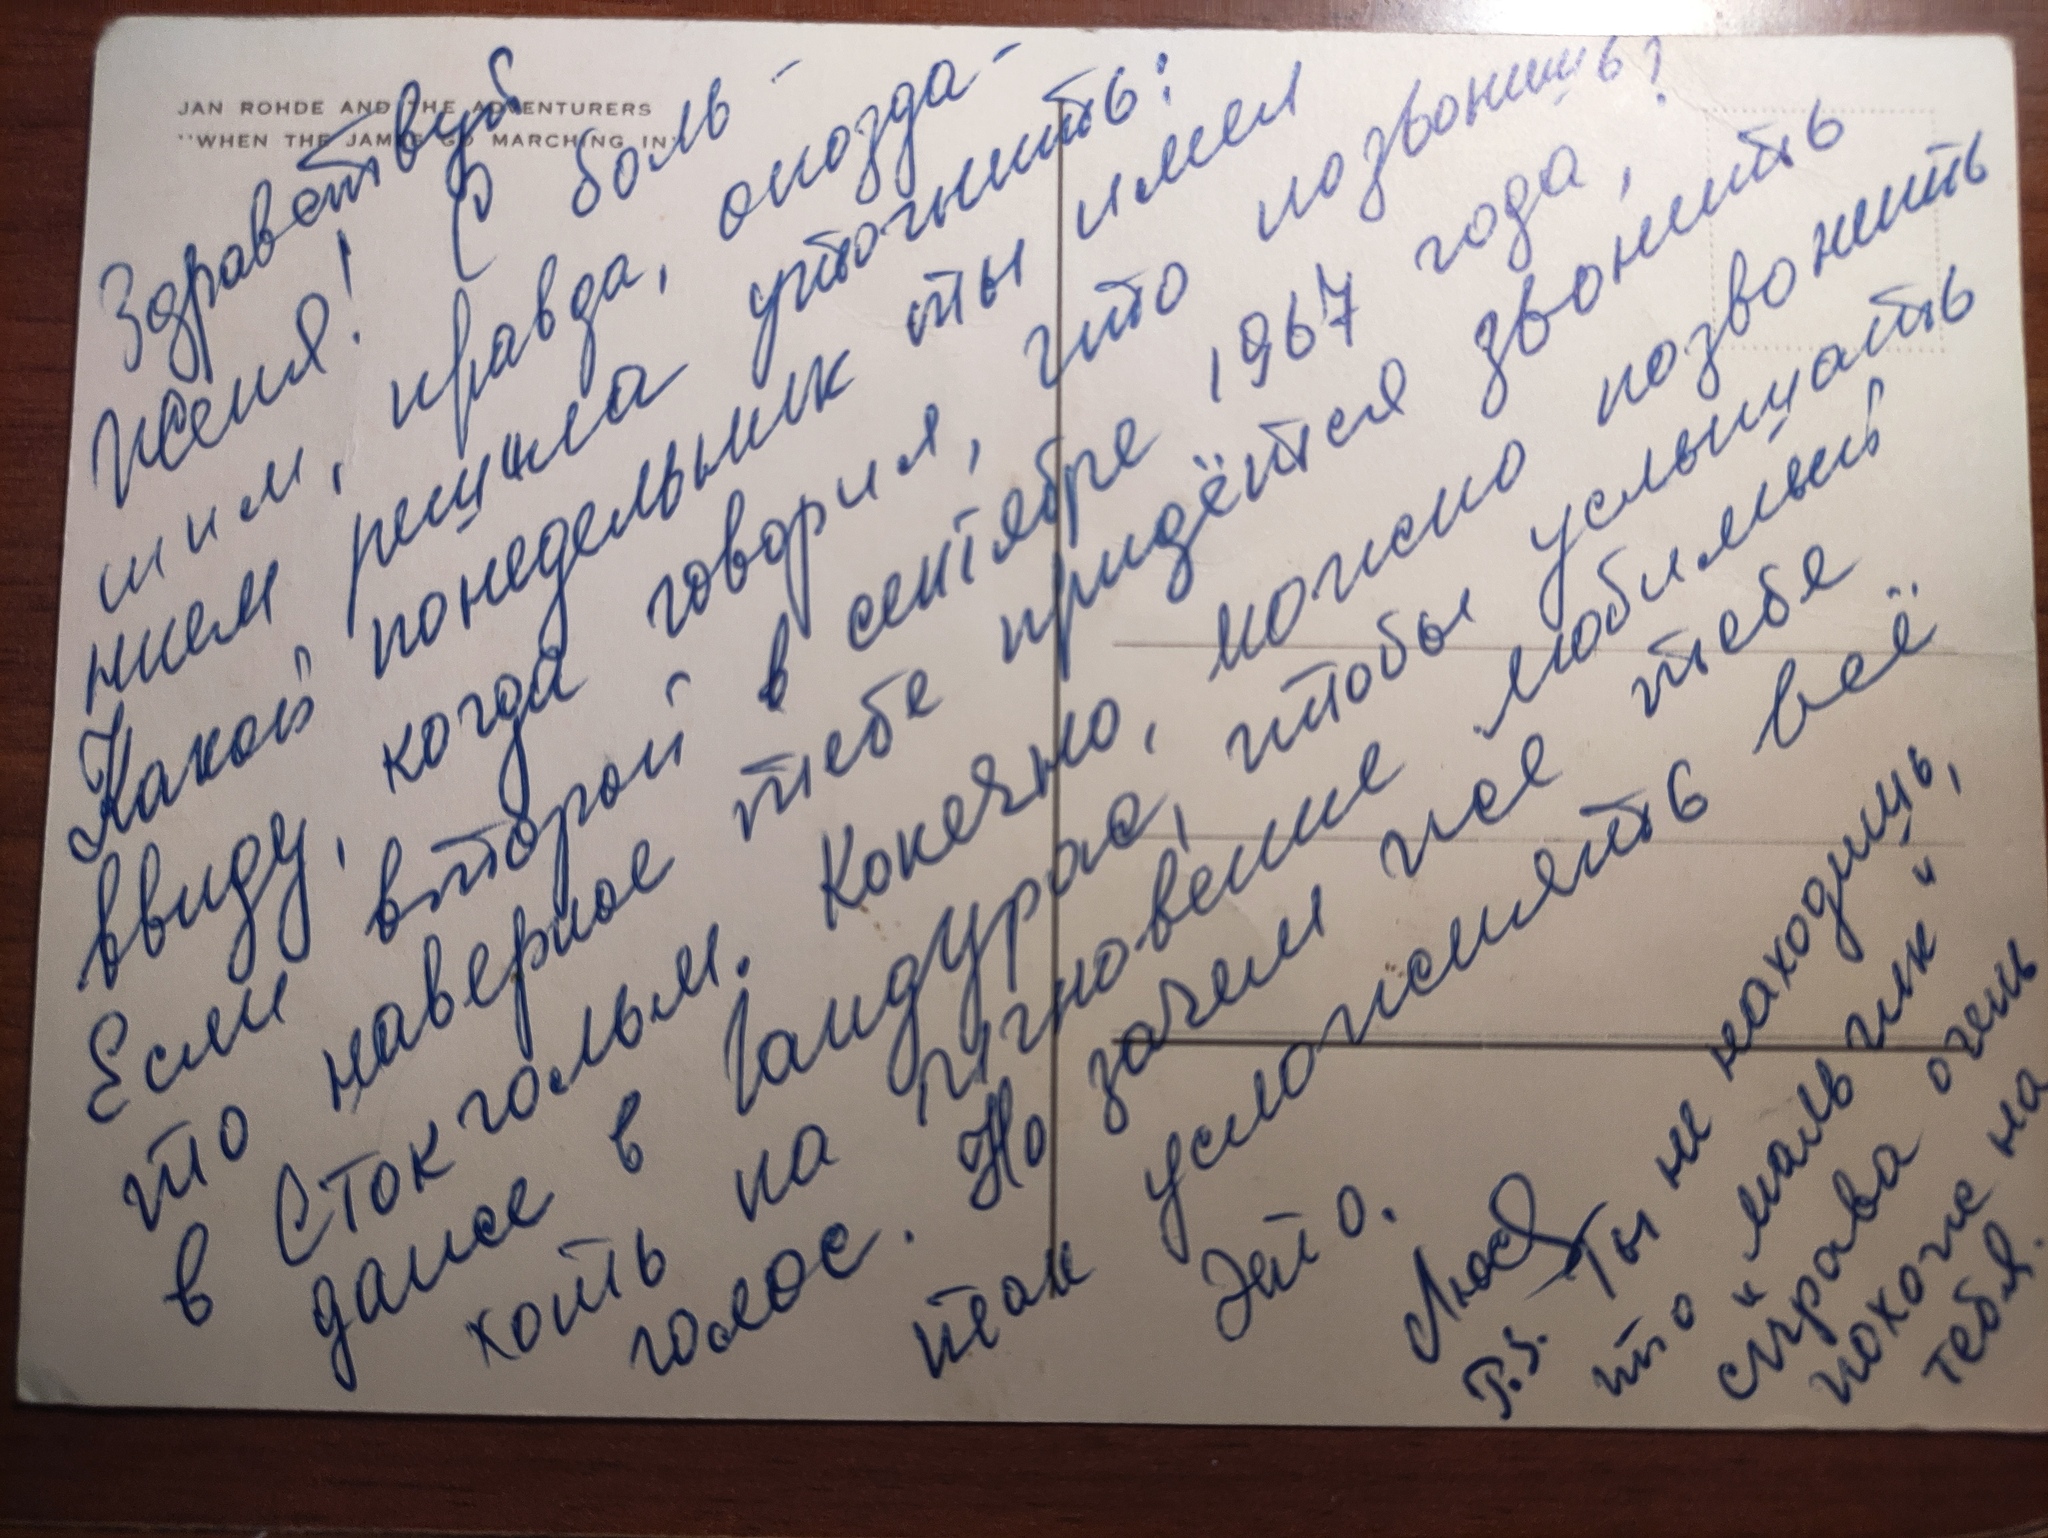 JAN ROHDE AND THE ADVENTURERS
"WHEN THE JAMS GO MARCHING IN"
Здравствуй
Женя! С боль-
шим, правда, опозда-
нием решила уточнить:
Какой понедельник ты имел
ввиду, когда говорил, что позвонишь?
Если второй в сентябре 1967 года,
то наверное тебе придётся звонить
в Стокгольм. Конечно, можно позвонить
даже в Гандурас, чтобы услышать
хоть на мгновение любимый
голос. Но зачем же тебе
так усложнять всё
это.
Люся
P.S. Ты не находишь,
что "мальчик"
справа очень
похоже на
тебя.